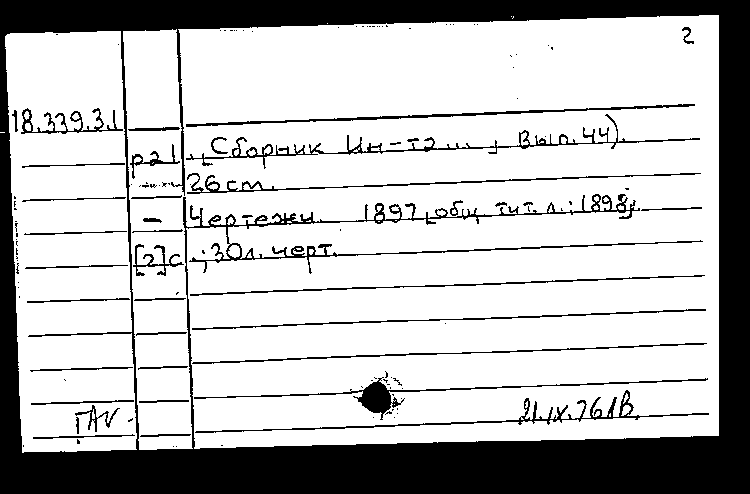 2
18.339.3.1
Сборник Ин-та ... , Вып. 44).
26 cm.
— Чертежи. 1897 общ. тит. л.; 1898
[2]с .; 30 л. черт.
21.IX.76